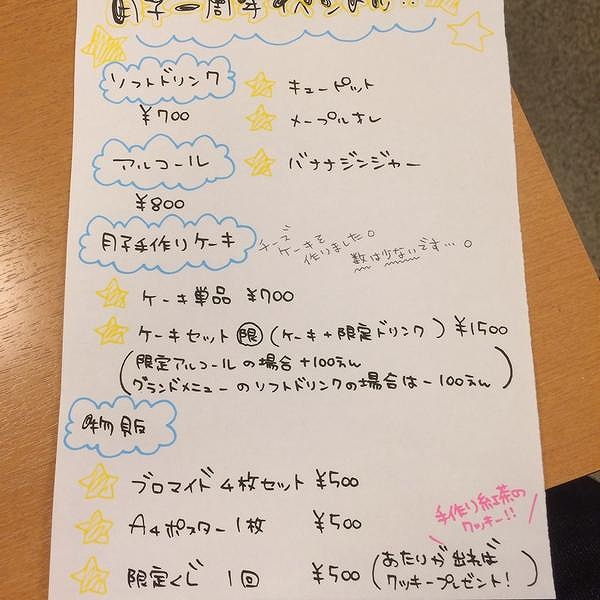 月子一周年イベント!!
ソフトドリンク
¥700
キューピット
メープルオレ
アルコール
¥800
バナナジンジャー
月子手作りケーキ
チーズ
ケーキを
作りました。
数は少ないです…。
ケーキ単品 ¥700
ケーキセット 限 (ケーキ+限定ドリンク) ¥1500
(限定アルコールの場合+100えん
グランドメニューのソフトドリンクの場合は-100えん)
物販
ブロマイド4枚セット ¥500
A4ポスター1枚 ¥500
手作り紅茶の
クッキー!!
限定くじ 1回 ¥500 (あたりが出れば
クッキープレゼント!)